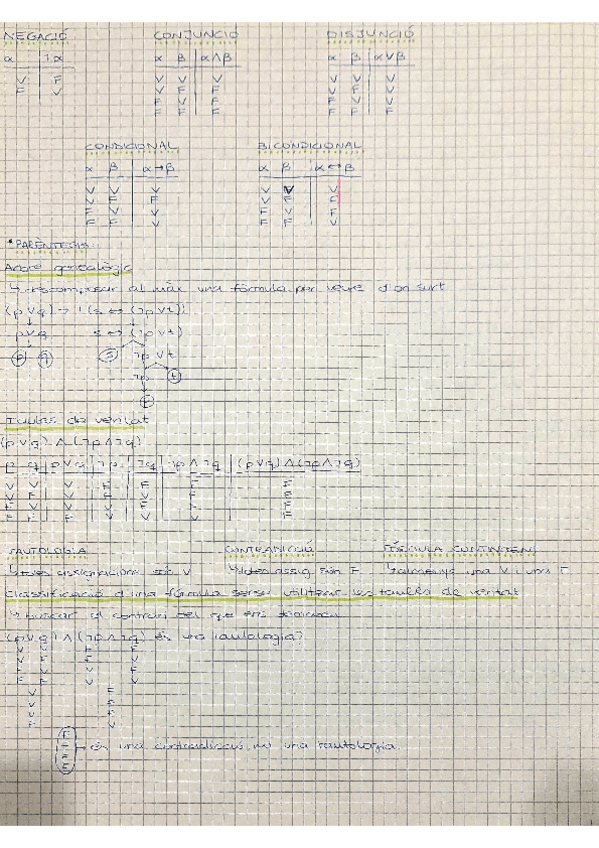 NEGACIÓ CONJUNCIÓ DISJUNCIÓ
α ¬α α β α∧β α β α∨β
V F V V V V V V
F V V F F V F V
F V F F V V
F F F F F F
CONDICIONAL BICONDICIONAL
α β α→β α β α↔β
V V V V V V
V F F V F F
F V V F V F
F F V F F V
*PARÈNTESIS
Arbre genealògic
↳ al màx una fórmula per veure d'on surt
(p∨q) → ¬(s ↔ (¬p∨t))
p∨q s ↔ (¬p∨t)
p q s ¬p∨t
¬p t
p
Taules de veritat
(p∨q)∧(¬p∧¬q)
p q p∨q ¬p ¬q ¬p∧¬q (p∨q)∧(¬p∧¬q)
V V V F F F F
V F V F V F F
F V V V F F F
F F F V V V F
TAUTOLOGIA CONTRADICCIÓ FÓRMULA CONTINGENT
↳ totes assignacions són V ↳ totes assig. són F ↳ almenys una V i una F
Classificació d'una fórmula sense utilitzar les taules de veritat
↳ buscar el contrari del que ens
(p∨q)∧(¬p∧¬q) és una tautologia?
V V F F
V F F V
F V V F
F F V V
V F
V F
V F
F V
F
F
F
F
és una contradicció, no una tautologia.